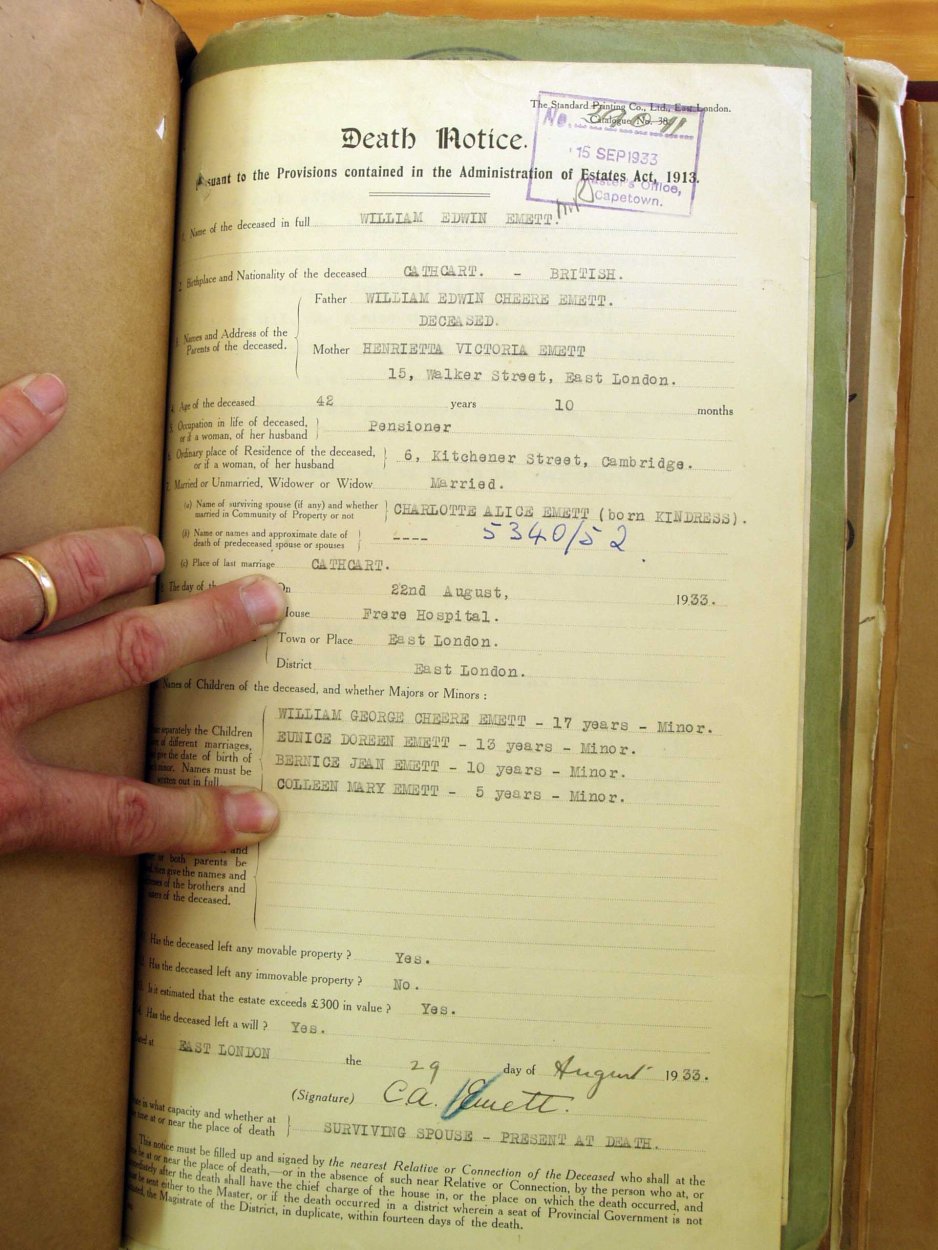 The Standard Printing Co., Ltd., East London.
Catalogue No. 38.
No.
15 SEP 1933
Master's Office,
Capetown.
Death Notice.
Pursuant to the Provisions contained in the Administration of Estates Act, 1913.
1. Name of the deceased in full WILLIAM EDWIN EMETT.
2. Birthplace and Nationality of the deceased CATHCART. - BRITISH.
3. Names and Address of the Parents of the deceased.
Father WILLIAM EDWIN CHEERE EMETT.
DECEASED.
Mother HENRIETTA VICTORIA EMETT
15, Walker Street, East London.
4. Age of the deceased 42 years 10 months
5. Occupation in life of deceased,
or if a woman, of her husband
Pensioner
6. Ordinary place of Residence of the deceased,
or if a woman, of her husband
6, Kitchener Street, Cambridge.
7. Married or Unmarried, Widower or Widow Married.
(a) Name of surviving spouse (if any) and whether
married in Community of Property or not
CHARLOTTE ALICE EMETT (born KINDRESS).
(b) Name or names and approximate date of
death of predeceased spouse or spouses
---- 5340/52
(c) Place of last marriage CATHCART.
The day of the
On 22nd August, 1933.
House Frere Hospital.
Town or Place East London.
District East London.
Names of Children of the deceased, and whether Majors or Minors :
separately the Children
of different marriages,
give the date of birth of
minor. Names must be
written out in full
WILLIAM GEORGE CHEERE EMETT - 17 years - Minor.
EUNICE DOREEN EMETT - 13 years - Minor.
BERNICE JEAN EMETT - 10 years - Minor.
COLLEEN MARY EMETT - 5 years - Minor.
and
or both parents be
then give the names and
of the brothers and
of the deceased.
Has the deceased left any movable property ? Yes.
Has the deceased left any immovable property ? No.
Is it estimated that the estate exceeds £300 in value ? Yes.
Has the deceased left a will ? Yes.
Dated at EAST LONDON the 29 day of August 1933.
(Signature) C.A. Emett.
in what capacity and whether at
time at or near the place of death
SURVIVING SPOUSE - PRESENT AT DEATH.
This notice must be filled up and signed by the nearest Relative or Connection of the Deceased who shall at the
be at or near the place of death,—or in the absence of such near Relative or Connection, by the person who at, or
immediately after the death shall have the chief charge of the house in, or the place on which the death occurred, and
must be sent either to the Master, or if the death occurred in a district wherein a seat of Provincial Government is not
the Magistrate of the District, in duplicate, within fourteen days of the death.